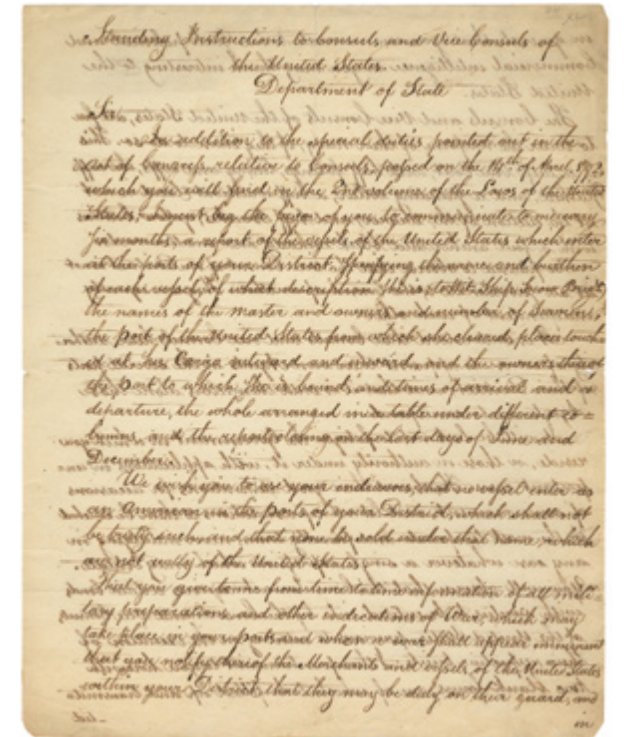 Standing Instructions to Consuls and Vice Consuls of
the United States.
Department of State
Sir,
In addition to the special duties pointed out in the
Act of Congress, relative to Consuls, passed on the 14th of April 1792,
which you will find in the 2nd volume of the Laws of the United
States, I must beg the favor of you to communicate to me every
six months, a report of the vessels of the United States which enter
in the ports of your District, specifying the name and burthen
of each vessel, of what description she is, to Wit, Ship, Snow, Brig &c
the names of the master and owners and number of Seamen,
the port of the United States from which she cleared, places touch
ed at, her Cargo outward and inward, and the owners thereof
the port to which she is bound, and times of arrival and
departure, the whole arranged in a table under different co=
lumns, and the reports closing on the last days of June and
December.
We wish you to use your endeavors, that no vessel enter as
an American in the ports of your District, which shall not
be truly such and that none be sold under that name, which
are not really of the United States.
That you give to me from time to time information of all mili-
tary preparations, and other indications of War, which may
take place in your ports and when a war shall appear imminent
that you notify thereof the Merchants and vessels of the United States
within your District, that they may be duly on their guard, and
in